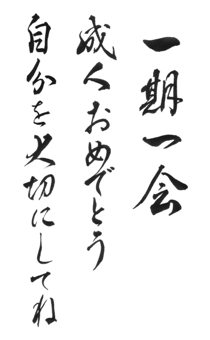 一期一会
成人おめでとう
自分を大切にしてね